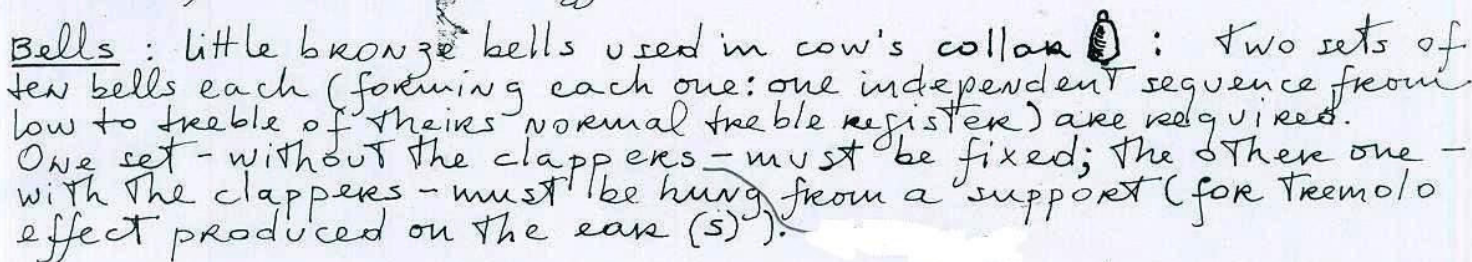 Bells : little bronze bells used in cow's collar : two sets of
ten bells each (forming each one: one independent sequence from
low to treble of theirs normal treble register) are required.
One set - without the clappers - must be fixed; the other one -
with the clappers - must be hung from a support (for tremolo
effect produced on the ear (s)).